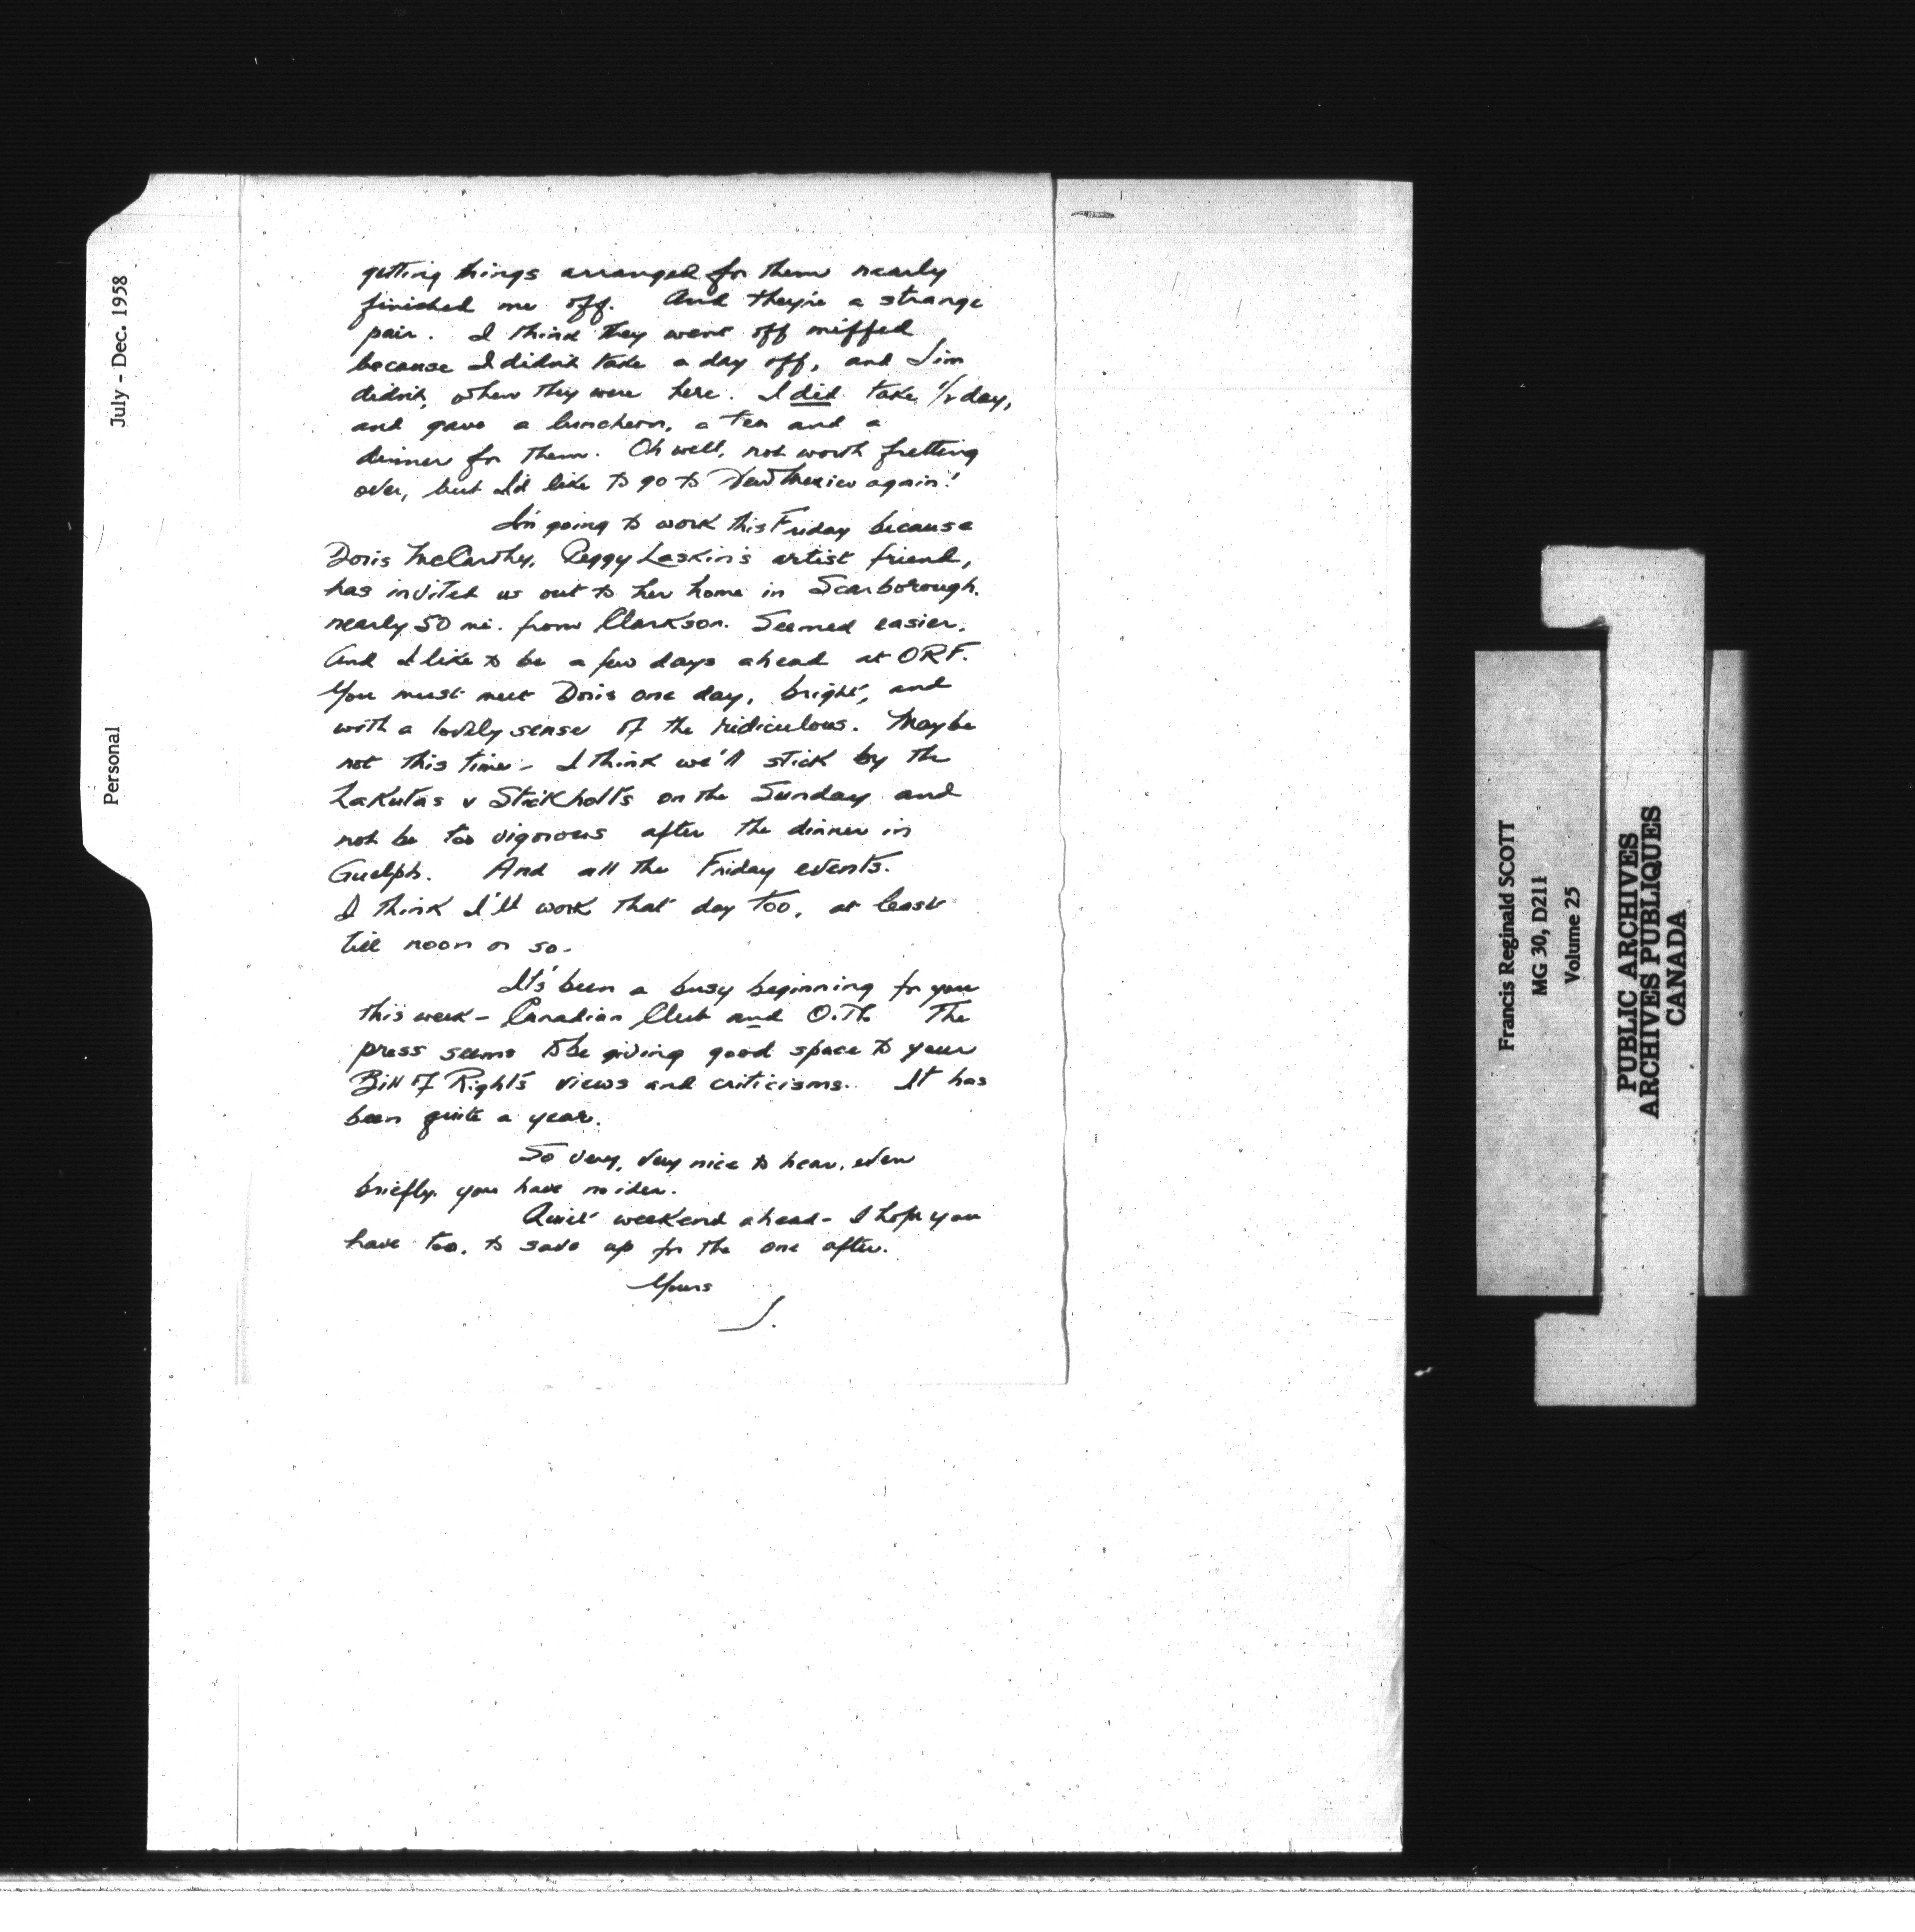 getting things arranged for them nearly
finished me off. And they're a strange
pair. I think they went off miffed
because I didn't take a day off, and Jim
didn't, when they were here. I did take 1/2 day,
and gave a luncheon, a tea and a
dinner for them. Oh well, not worth fretting
over, but I'd like to go to New Mexico again!
I'm going to work this Friday because
Doris McCarthy, Peggy Laskin's artist friend,
has invited us out to her home in Scarborough,
nearly 50 mi. from Clarkson. Seemed easier.
And I like to be a few days ahead at ORF.
You must meet Doris one day, bright, and
with a lovely sense of the ridiculous. Maybe
not this time - I think we'll stick by the
and
on the Sunday and
not be too vigorous after the dinner in
Guelph. And all the Friday events.
I think I'll work that day too, at least
till noon or so.
It's been a busy beginning for you
this week - Canadian Club and The
press seems to be giving good space to your
Bill of Rights views and criticisms. It has
been quite a year.
So very, very nice to hear, even
briefly, you have no idea.
Quiet weekend ahead - I hope you
have too, to save up for the one after.
Yours
J.
July - Dec. 1958
Personal
Francis Reginald SCOTT
MG 30, D211
Volume 25
PUBLIC ARCHIVES
ARCHIVES PUBLIQUES
CANADA